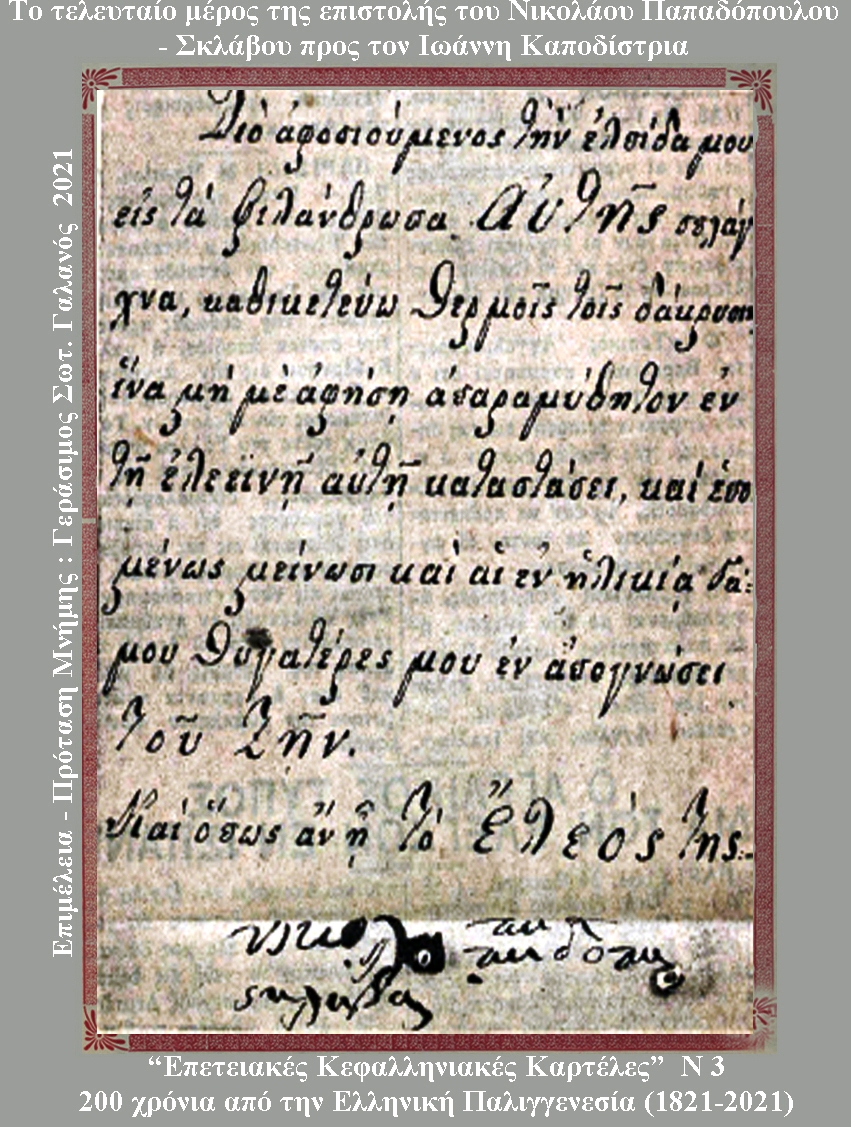 Το τελευταίο μέρος της επιστολής του Νικολάου Παπαδόπουλου
- Σκλάβου προς τον Ιωάννη Καποδίστρια
Επιμέλεια - Πρόταση Μνήμης : Γεράσιμος Σωτ. Γαλανός 2021
Διὸ ἀφοσιούμενος τὴν ἐλπίδα μου
εἰς τὰ φιλάνθρωπα Αὐτῆς σπλάγ
χνα, καθικετεύω θερμοῖς τοῖς δάκρυσι
ἵνα μὴ μὲ ἀφήσῃ ἀπαραμύθητον ἐν
τῇ ἐλεεινῇ αὐτῇ καταστάσει, καὶ ἑπο
μένως μείνωσι καὶ αἱ ἐν ἡλικίᾳ γά:
μου θυγατέρες μου ἐν ἀπογνώσει
τοῦ ζῆν.
Καὶ ὅπως ἂν ᾖ τὸ ἔλεός της:-
“Επετειακές Κεφαλληνιακές Καρτέλες” Ν 3
200 χρόνια από την Ελληνική Παλιγγενεσία (1821-2021)